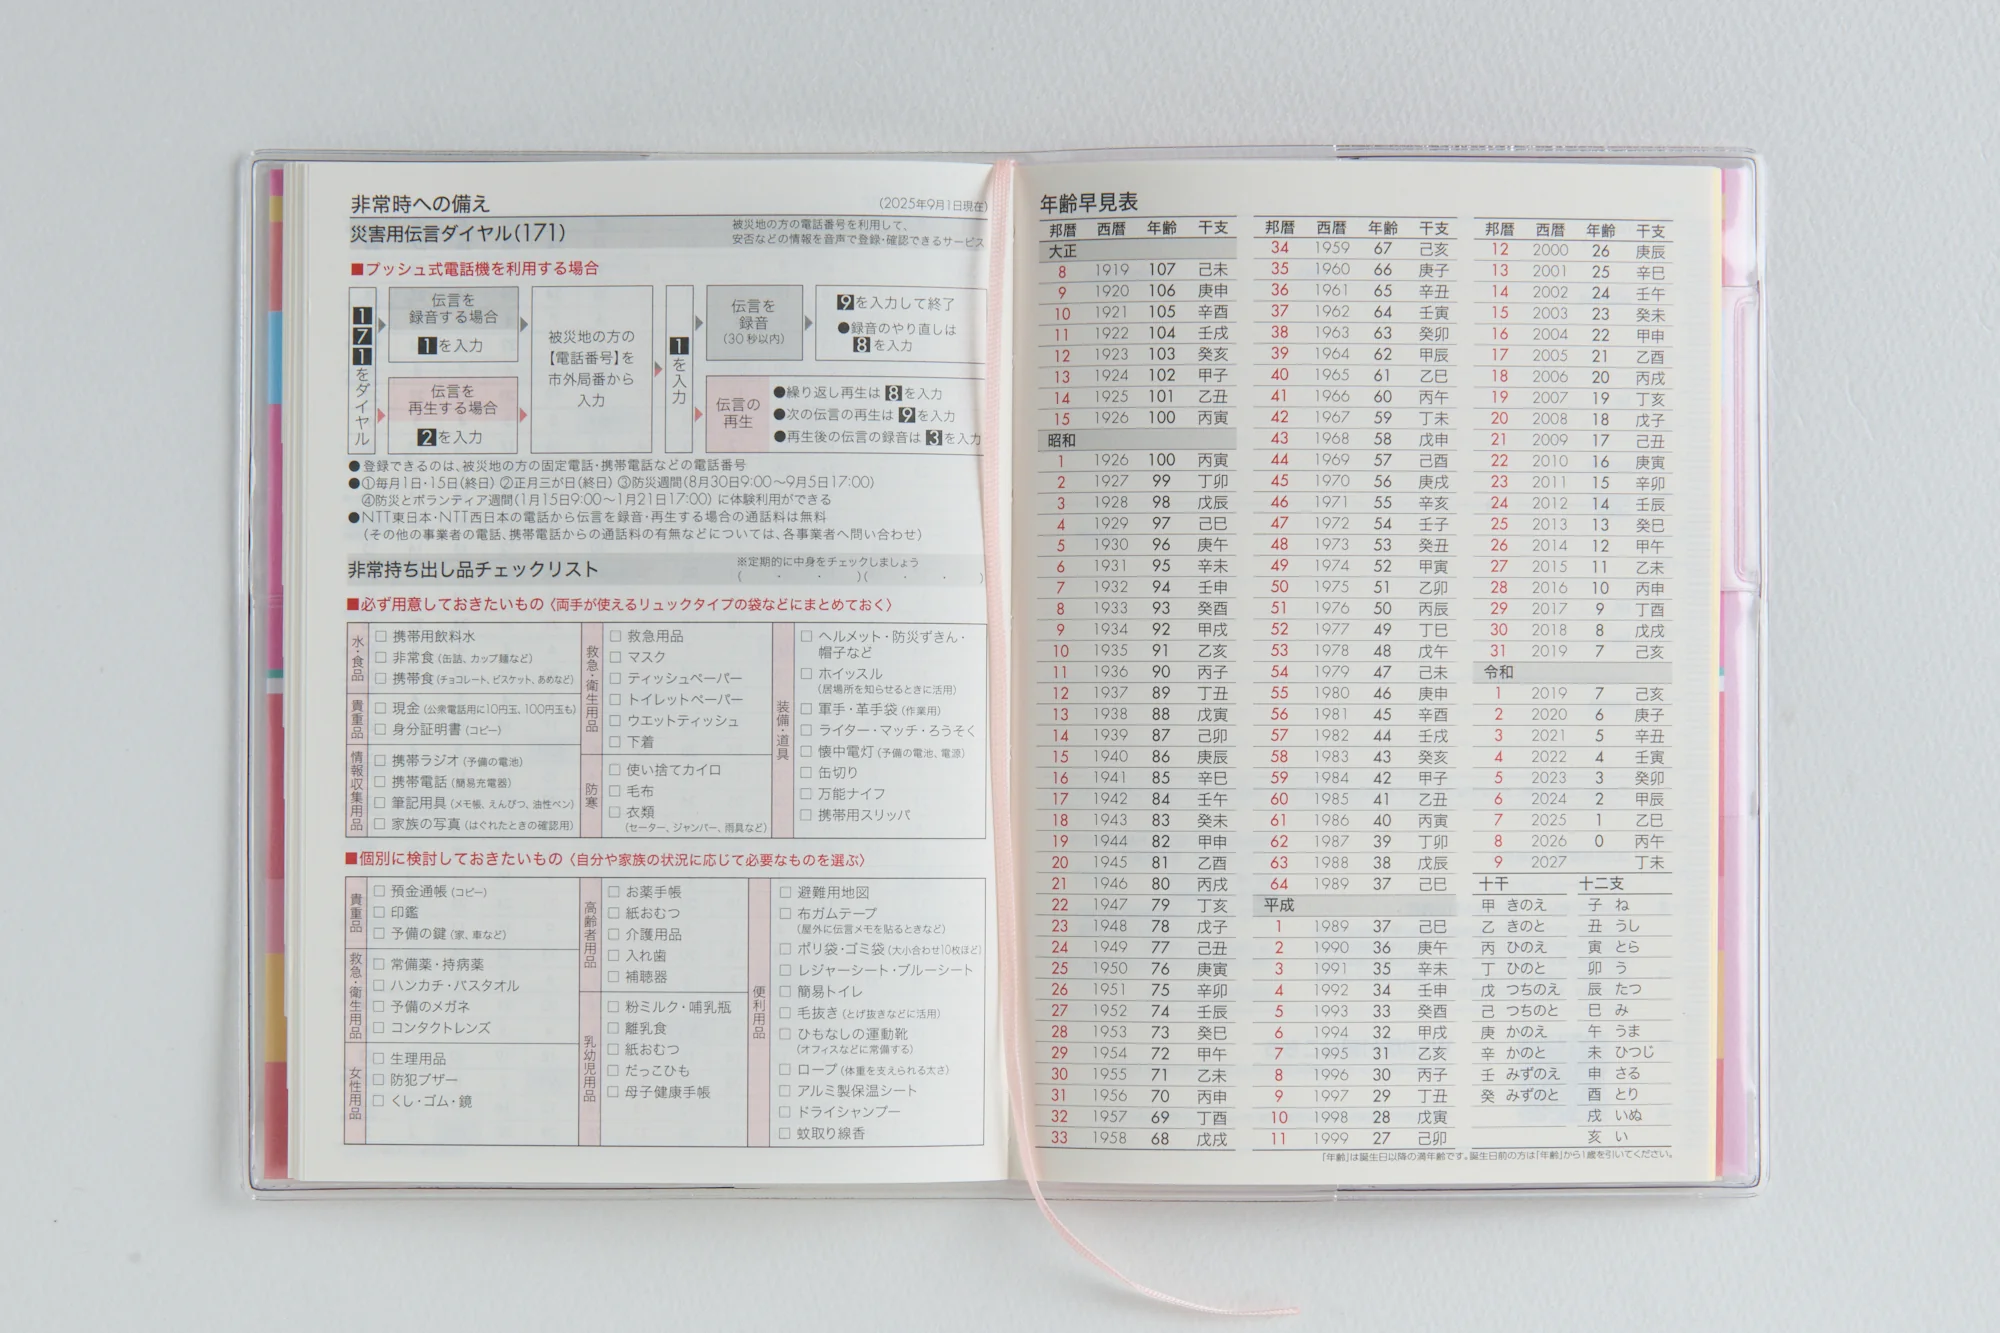 非常時への備え
(2025年9月1日現在)
災害用伝言ダイヤル(171)
被災地の方の電話番号を利用して、
安否などの情報を音声で登録・確認できるサービス
■プッシュ式電話機を利用する場合
171をダイヤル
伝言を
録音する場合
1を入力
伝言を
再生する場合
2を入力
被災地の方の
【電話番号】を
市外局番から
入力
1を入力
伝言を
録音
(30秒以内)
9を入力して終了
●録音のやり直しは
8を入力
伝言の
再生
●繰り返し再生は8を入力
●次の伝言の再生は9を入力
●再生後の伝言の録音は3を入力
●登録できるのは、被災地の方の固定電話・携帯電話などの電話番号
●①毎月1日・15日(終日) ②正月三が日(終日) ③防災週間(8月30日9:00〜9月5日17:00)
④防災とボランティア週間(1月15日9:00〜1月21日17:00) に体験利用ができる
●NTT東日本・NTT西日本の電話から伝言を録音・再生する場合の通話料は無料
(その他の事業者の電話、携帯電話からの通話料の有無などについては、各事業者へ問い合わせ)
非常持ち出し品チェックリスト
※定期的に中身をチェックしましょう
( ・ ・ )( ・ ・ )
■必ず用意しておきたいもの〈両手が使えるリュックタイプの袋などにまとめておく〉
水・食品
□ 携帯用飲料水
□ 非常食(缶詰、カップ麺など)
□ 携帯食(チョコレート、ビスケット、あめなど)
貴重品
□ 現金(公衆電話用に10円玉、100円玉も)
□ 身分証明書(コピー)
情報収集用品
□ 携帯ラジオ(予備の電池)
□ 携帯電話(簡易充電器)
□ 筆記用具(メモ帳、えんぴつ、油性ペン)
□ 家族の写真(はぐれたときの確認用)
救急・衛生用品
□ 救急用品
□ マスク
□ ティッシュペーパー
□ トイレットペーパー
□ ウエットティッシュ
□ 下着
防寒
□ 使い捨てカイロ
□ 毛布
□ 衣類
(セーター、ジャンパー、雨具など)
装備・道具
□ ヘルメット・防災ずきん・
帽子など
□ ホイッスル
(居場所を知らせるときに活用)
□ 軍手・革手袋(作業用)
□ ライター・マッチ・ろうそく
□ 懐中電灯(予備の電池、電源)
□ 缶切り
□ 万能ナイフ
□ 携帯用スリッパ
■個別に検討しておきたいもの〈自分や家族の状況に応じて必要なものを選ぶ〉
貴重品
□ 預金通帳(コピー)
□ 印鑑
□ 予備の鍵(家、車など)
救急・衛生用品
□ 常備薬・持病薬
□ ハンカチ・バスタオル
□ 予備のメガネ
□ コンタクトレンズ
女性用品
□ 生理用品
□ 防犯ブザー
□ くし・ゴム・鏡
高齢者用品
□ お薬手帳
□ 紙おむつ
□ 介護用品
□ 入れ歯
□ 補聴器
乳幼児用品
□ 粉ミルク・哺乳瓶
□ 離乳食
□ 紙おむつ
□ だっこひも
□ 母子健康手帳
便利用品
□ 避難用地図
□ 布ガムテープ
(屋外に伝言メモを貼るときなど)
□ ポリ袋・ゴミ袋(大小合わせ10枚ほど)
□ レジャーシート・ブルーシート
□ 簡易トイレ
□ 毛抜き(とげ抜きなどに活用)
□ ひもなしの運動靴
(オフィスなどに常備する)
□ ロープ(体重を支えられる太さ)
□ アルミ製保温シート
□ ドライシャンプー
□ 蚊取り線香
年齢早見表
邦暦 西暦 年齢 干支
大正
8 1919 107 己未
9 1920 106 庚申
10 1921 105 辛酉
11 1922 104 壬戌
12 1923 103 癸亥
13 1924 102 甲子
14 1925 101 乙丑
15 1926 100 丙寅
昭和
1 1926 100 丙寅
2 1927 99 丁卯
3 1928 98 戊辰
4 1929 97 己巳
5 1930 96 庚午
6 1931 95 辛未
7 1932 94 壬申
8 1933 93 癸酉
9 1934 92 甲戌
10 1935 91 乙亥
11 1936 90 丙子
12 1937 89 丁丑
13 1938 88 戊寅
14 1939 87 己卯
15 1940 86 庚辰
16 1941 85 辛巳
17 1942 84 壬午
18 1943 83 癸未
19 1944 82 甲申
20 1945 81 乙酉
21 1946 80 丙戌
22 1947 79 丁亥
23 1948 78 戊子
24 1949 77 己丑
25 1950 76 庚寅
26 1951 75 辛卯
27 1952 74 壬辰
28 1953 73 癸巳
29 1954 72 甲午
30 1955 71 乙未
31 1956 70 丙申
32 1957 69 丁酉
33 1958 68 戊戌
邦暦 西暦 年齢 干支
34 1959 67 己亥
35 1960 66 庚子
36 1961 65 辛丑
37 1962 64 壬寅
38 1963 63 癸卯
39 1964 62 甲辰
40 1965 61 乙巳
41 1966 60 丙午
42 1967 59 丁未
43 1968 58 戊申
44 1969 57 己酉
45 1970 56 庚戌
46 1971 55 辛亥
47 1972 54 壬子
48 1973 53 癸丑
49 1974 52 甲寅
50 1975 51 乙卯
51 1976 50 丙辰
52 1977 49 丁巳
53 1978 48 戊午
54 1979 47 己未
55 1980 46 庚申
56 1981 45 辛酉
57 1982 44 壬戌
58 1983 43 癸亥
59 1984 42 甲子
60 1985 41 乙丑
61 1986 40 丙寅
62 1987 39 丁卯
63 1988 38 戊辰
64 1989 37 己巳
平成
1 1989 37 己巳
2 1990 36 庚午
3 1991 35 辛未
4 1992 34 壬申
5 1993 33 癸酉
6 1994 32 甲戌
7 1995 31 乙亥
8 1996 30 丙子
9 1997 29 丁丑
10 1998 28 戊寅
11 1999 27 己卯
邦暦 西暦 年齢 干支
12 2000 26 庚辰
13 2001 25 辛巳
14 2002 24 壬午
15 2003 23 癸未
16 2004 22 甲申
17 2005 21 乙酉
18 2006 20 丙戌
19 2007 19 丁亥
20 2008 18 戊子
21 2009 17 己丑
22 2010 16 庚寅
23 2011 15 辛卯
24 2012 14 壬辰
25 2013 13 癸巳
26 2014 12 甲午
27 2015 11 乙未
28 2016 10 丙申
29 2017 9 丁酉
30 2018 8 戊戌
31 2019 7 己亥
令和
1 2019 7 己亥
2 2020 6 庚子
3 2021 5 辛丑
4 2022 4 壬寅
5 2023 3 癸卯
6 2024 2 甲辰
7 2025 1 乙巳
8 2026 0 丙午
9 2027 丁未
十干 十二支
甲 きのえ 子 ね
乙 きのと 丑 うし
丙 ひのえ 寅 とら
丁 ひのと 卯 う
戊 つちのえ 辰 たつ
己 つちのと 巳 み
庚 かのえ 午 うま
辛 かのと 未 ひつじ
壬 みずのえ 申 さる
癸 みずのと 酉 とり
戌 いぬ
亥 い
「年齢」は誕生日以降の満年齢です。誕生日前の方は「年齢」から1歳を引いてください。